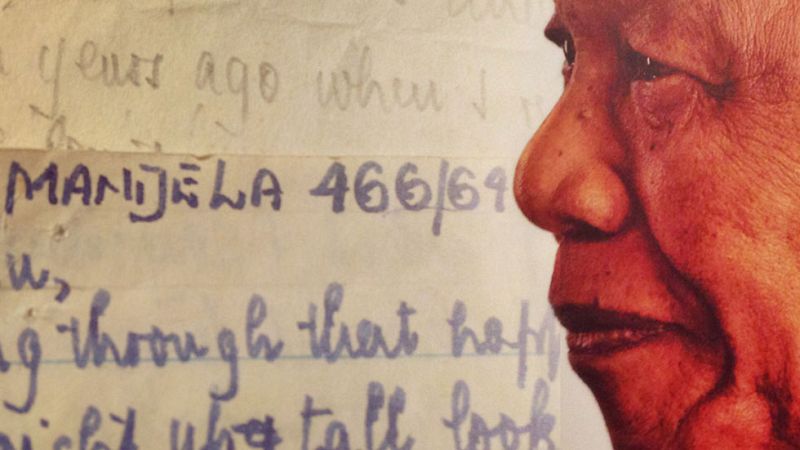 years ago when
MANDELA 466/64
u,
g through that hap
ight tall look